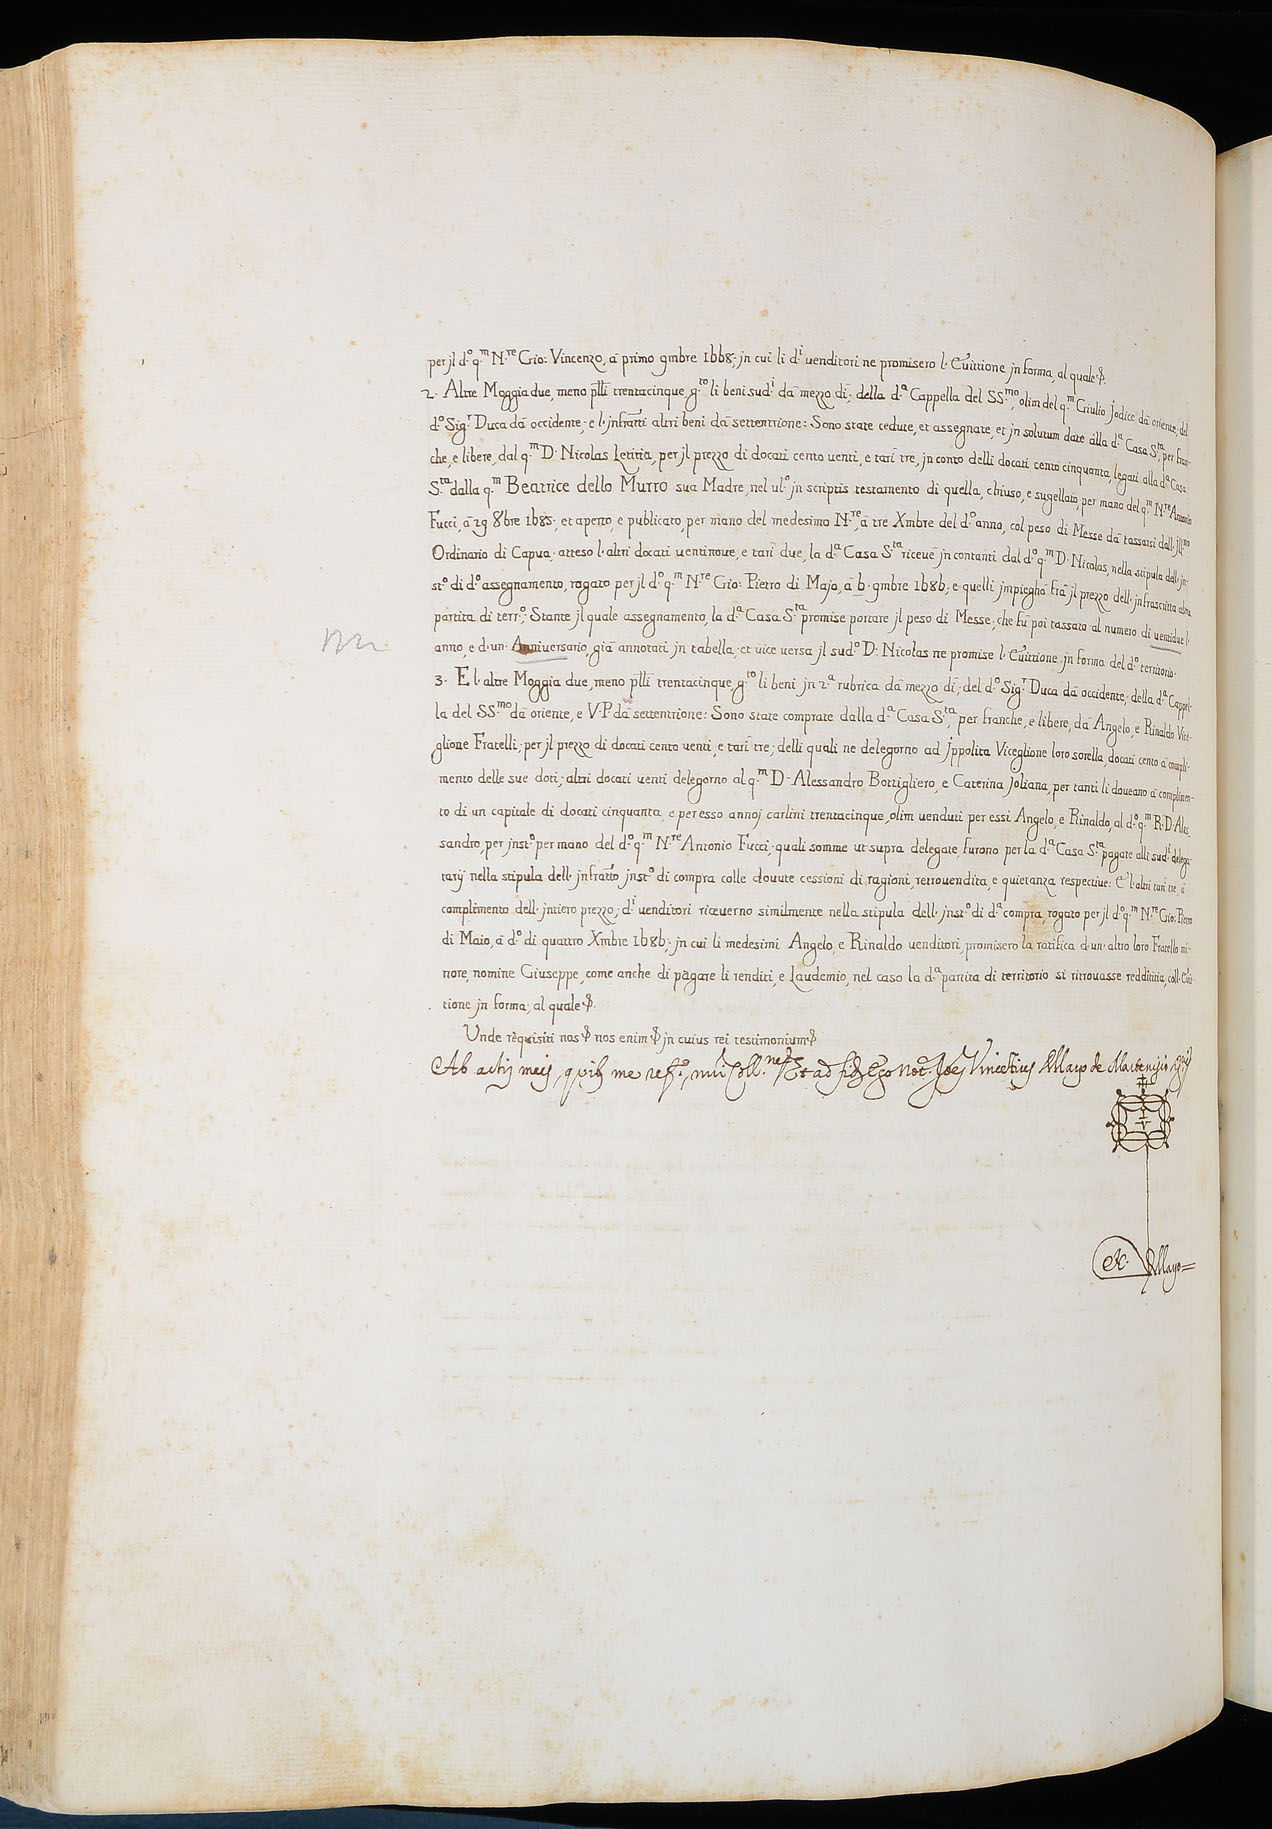 per jl d.º q.m N.re Gio: Vincenzo, à primo 9mbre 1668; jn cui li d.i venditori ne promisero l'Evittione jn forma, al quale &.
2. Altre Moggia due, meno plli trentacinque, g.to li beni sud.i dà mezzo dì; della d.a Cappella del SS.mo, olim del q.m Giulio Jodice dà oriente, del
d.º Sig.r Duca dà occidente; e l'jnfratti altri beni dà settentrione: Sono state cedute, et assegnate, et jn solutum date alla d.a Casa S.ta, per fran-
che, e libere, dal q.m D. Nicolas Letitia, per jl prezzo di docati cento venti, e tarì tre, jn conto delli docati cento cinquanta, legati alla d.a Casa
S.ta dalla q.m Beatrice dello Mutto sua Madre, nel ul.º jn scriptis testamento di quella, chiuso, e sugellato, per mano del q.m N.re Antonio
Fucci, à 29 8bre 1685; et aperto, e publicato, per mano del medesimo N.re, à tre Xmbre del d.º anno, col peso di Messe dà tassarsi dall' jll.mo
Ordinario di Capua; atteso l'altri docati ventinove, e tarì due, la d.a Casa S.ta ricevè jn contanti dal d.º q.m D. Nicolas, nella stipula dell' jn-
st.º di d.º assegnamento, rogato per jl d.º q.m N.re Gio: Pietro di Majo, à 6. 9mbre 1686; e quelli jmpieghò frà jl prezzo dell' jnfrascritta altra
partita di terr.º; Stante jl quale assegnamento, la d.a Casa S.ta promise portare jl peso di Messe; che fù poi tassato al numero di ventidue l'
anno, e d'un' Anniversario, già annotati jn tabella; et vice versa jl sud.º D. Nicolas ne promise l'Evittione jn forma del d.º territorio.
3. E l'altre Moggia due, meno plli trentacinque, g.to li beni jn 2.a rubrica dà mezzo dì; del d.º Sig.r Duca dà occidente; della d.a Cappel-
la del SS.mo dà oriente, e V.P. dà settentrione: Sono state comprate dalla d.a Casa S.ta, per franche, e libere, dà Angelo, e Rinaldo Vice-
glione Fratelli; per jl prezzo di docati cento venti, e tarì tre; delli quali ne delegorno ad Jppolita Viceglione loro sorella, docati cento à compli-
mento delle sue doti; altri docati venti delegorno al q.m D. Alessandro Bottigliero, e Caterina Joliana, per tanti li doveano à complimen-
to di un capitale di docati cinquanta, e per esso annoj carlini trentacinque, olim venduti per essi Angelo, e Rinaldo, al d.º q.m R. D. Ales-
sandro, per jnst.º per mano del d.º q.m N.re Antonio Fucci; quali somme ut supra delegate, furono per la d.a Casa S.ta pagate alli sud.i delega-
tarij nella stipula dell' jnfratto jnst.º di compra colle dovute cessioni di ragioni, retrovendita, e quietanza respective: E l'altri tarì tre, à
complimento dell' jntiero prezzo; d.i venditori riceverno similmente nella stipula dell' jnst.º di d.a compra, rogato per jl d.º q.m N.re Gio: Pietro
di Maio, à d.º di quattro Xmbre 1686; jn cui li medesimi Angelo, e Rinaldo venditori, promisero la ratifica d'un' altro loro Fratello mi-
nore, nomine Giuseppe, come anche di pagare li renditi, e Laudemio, nel caso la d.a partita di territorio si ritrovasse reddititia, coll' Evit-
tione jn forma; al quale &.
Unde requisiti nos & nos enim & jn cuius rei testimonium &
Ab actis meis, quib. me ref.o, Et ad fid. Ego Not. Joes Vincentius Mayo de
Mayo